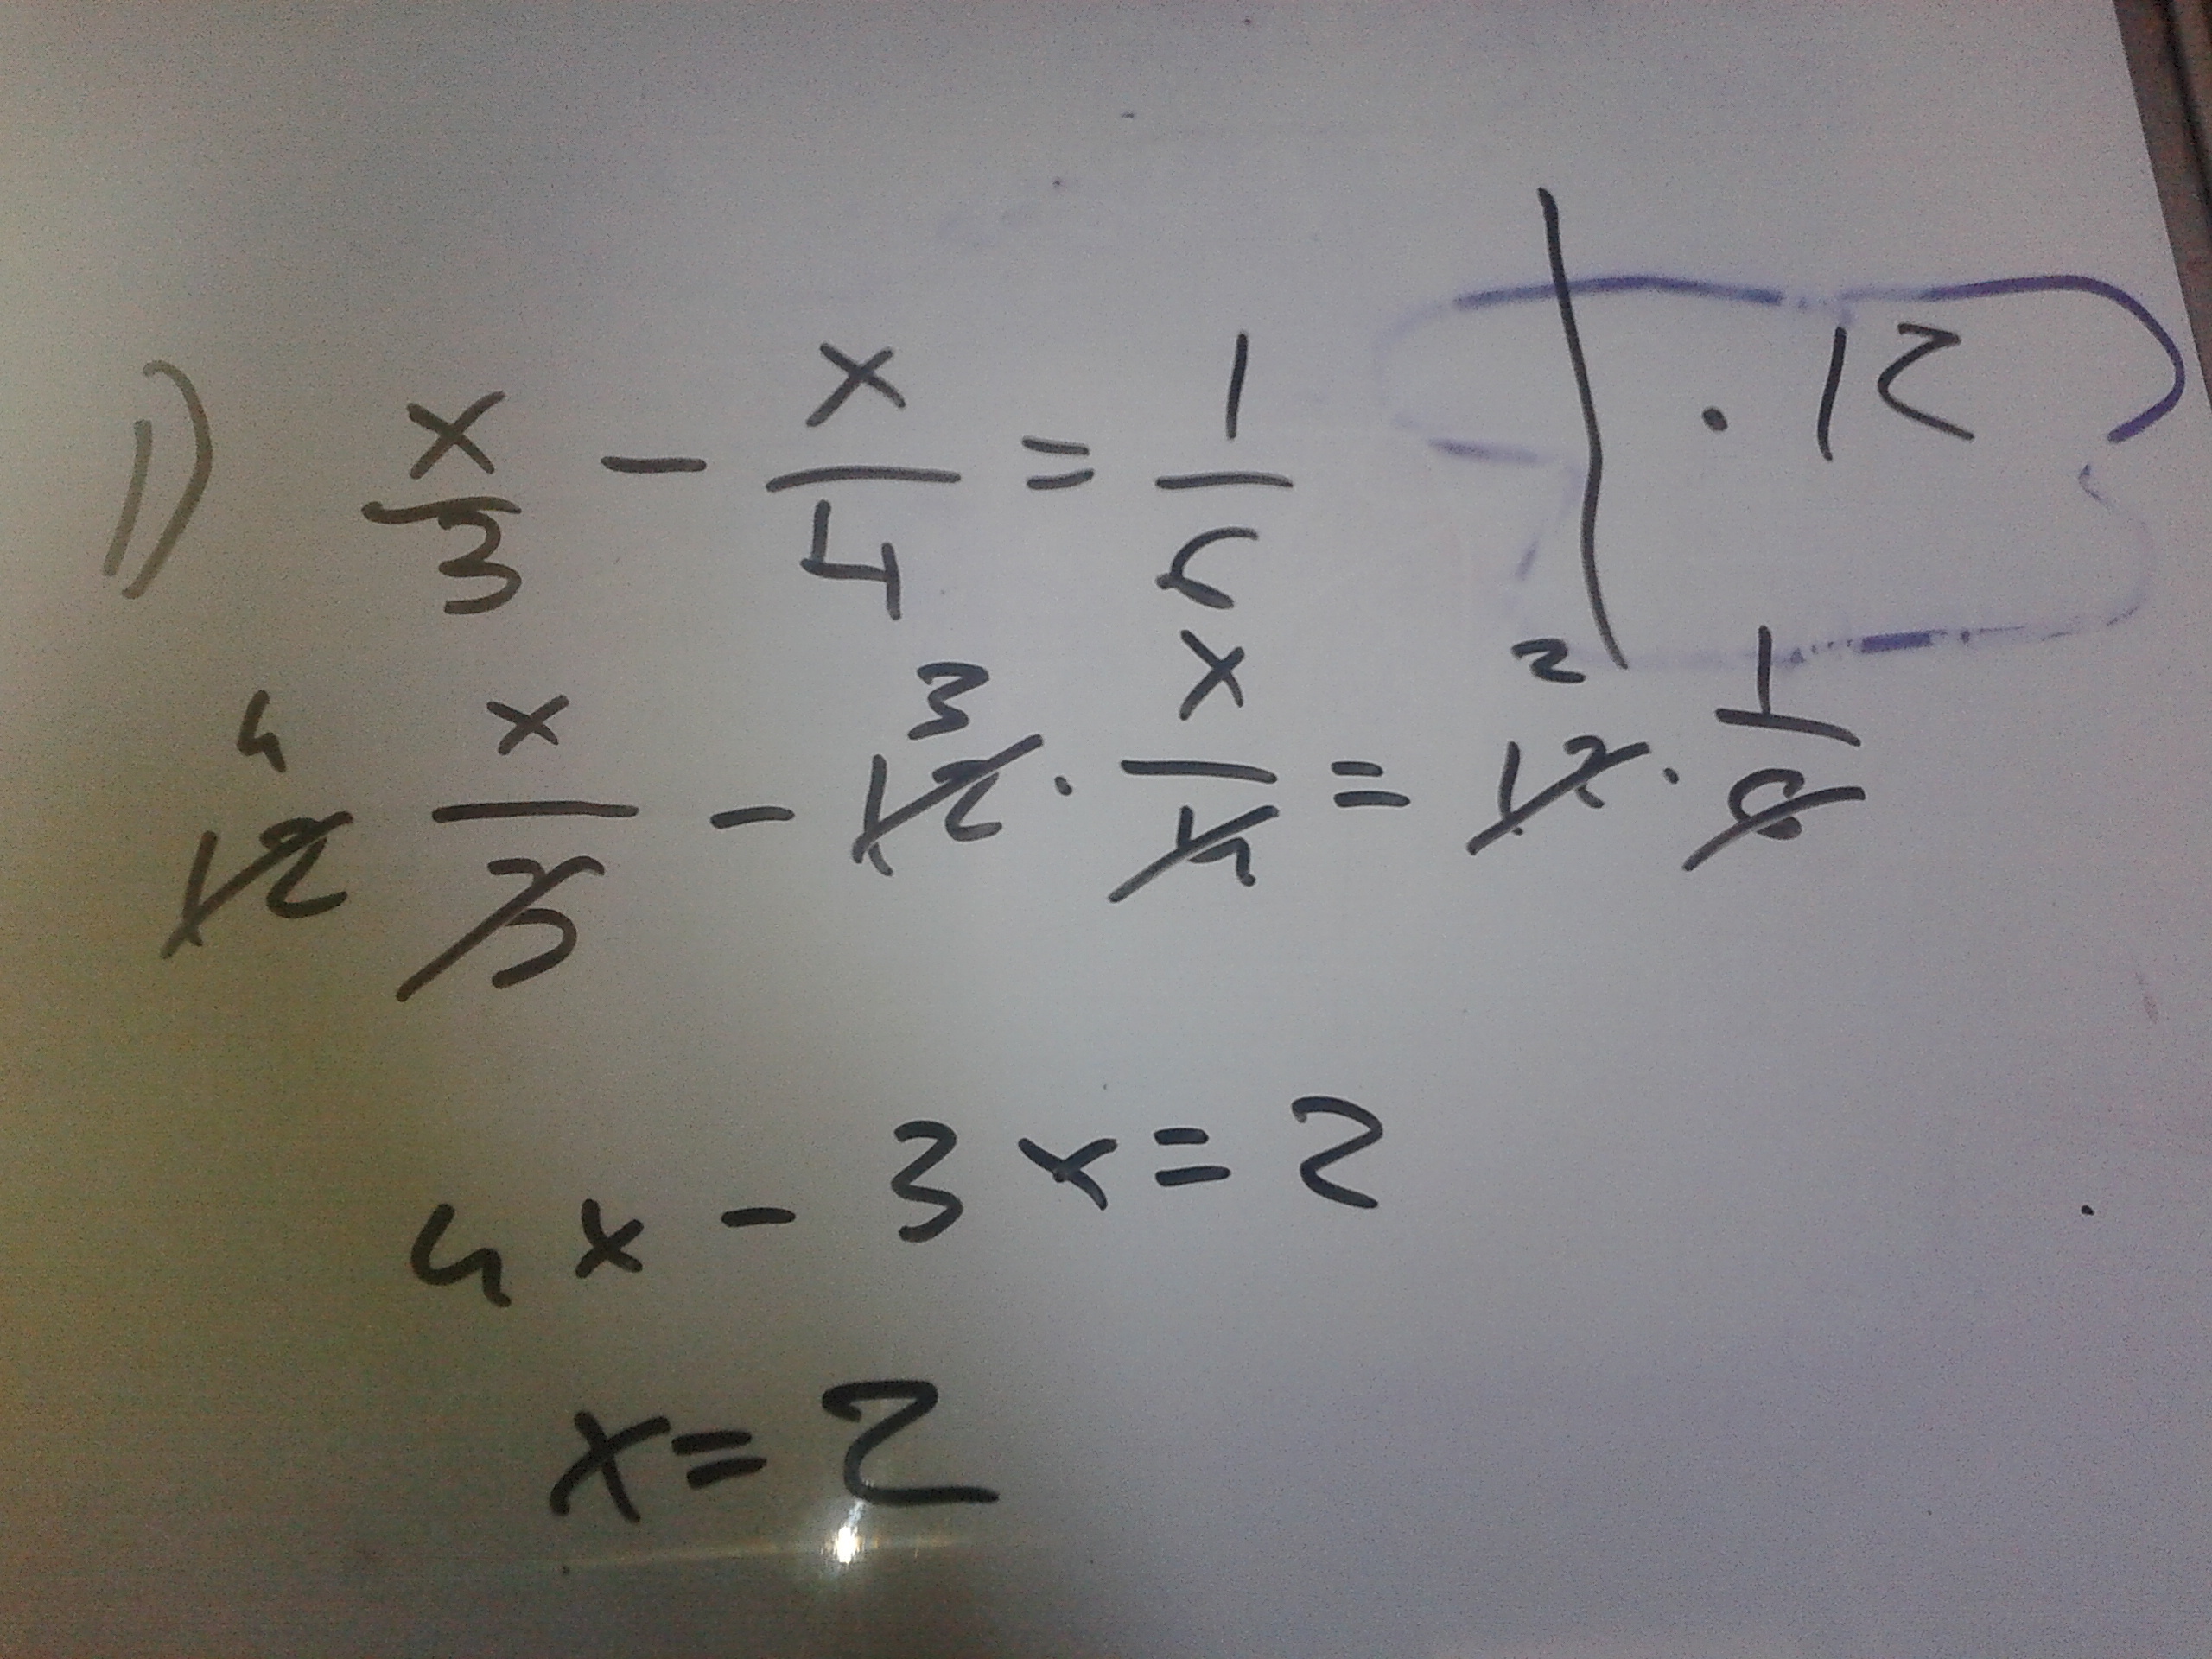 1) x/3 - x/4 = 1/6 | · 12
4 3 2
12 x/3 - 12 · x/4 = 12 · 1/6
4x - 3x = 2
x = 2